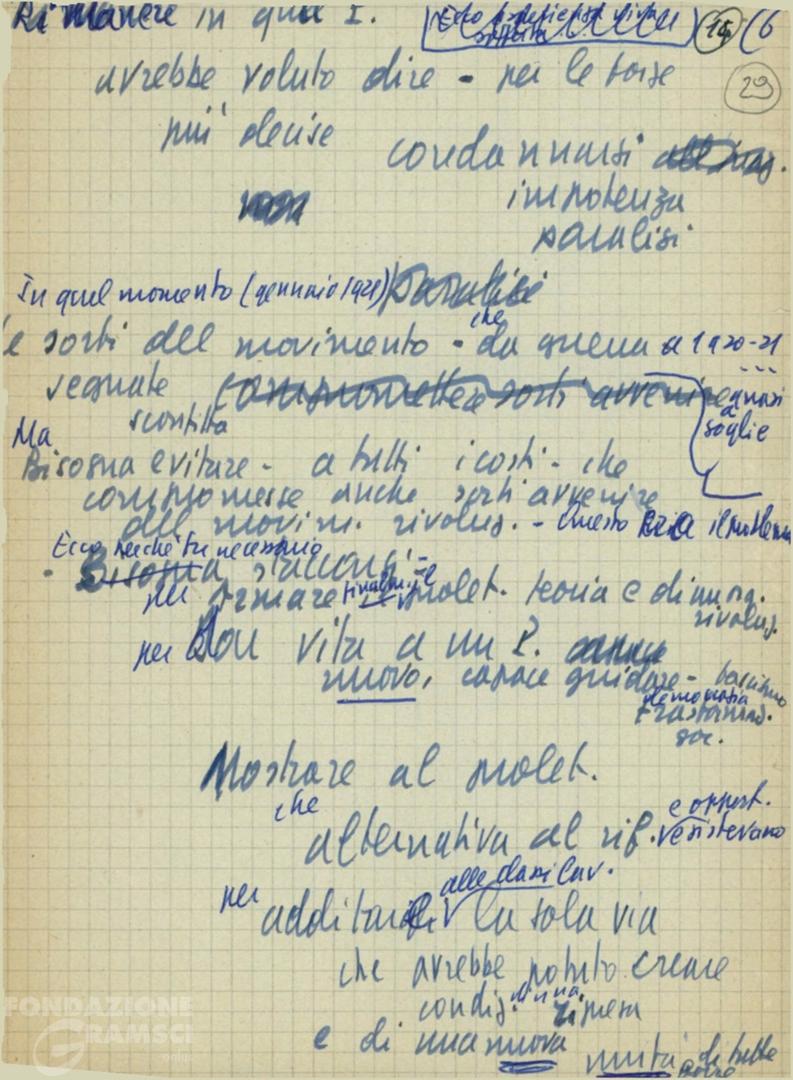 Rimanere in quel P.
15 (6
29
avrebbe voluto dire - per le forze
più decise
condannarsi
impotenza
paralisi
In quel momento (gennaio 1921) paralisi
le sorti del movimento - che da guerra a 1920-21
segnate compromettere sorti avvenire quasi
sconfitta a soglie
Ma
Bisogna evitare - a tutti i costi - che
compromesse anche sorti avvenire
del movim. rivoluz. - Questo era il problema
Ecco perché fu necessario
- Bisogna staccarsi -
per armare finalm. prolet. teoria e di
rivoluz.
per Dar vita a un P.
nuovo, capace guidare - fascismo
democrazia
trasformaz.
soc.
Mostrare al prolet.
che e opport.
alternativa al rif. esistevano
alle classi lav.
per additare la sola via
che avrebbe potuto creare
condiz. di una ripresa
e di una nuova unità di tutte
forze
FONDAZIONE
GRAMSCI